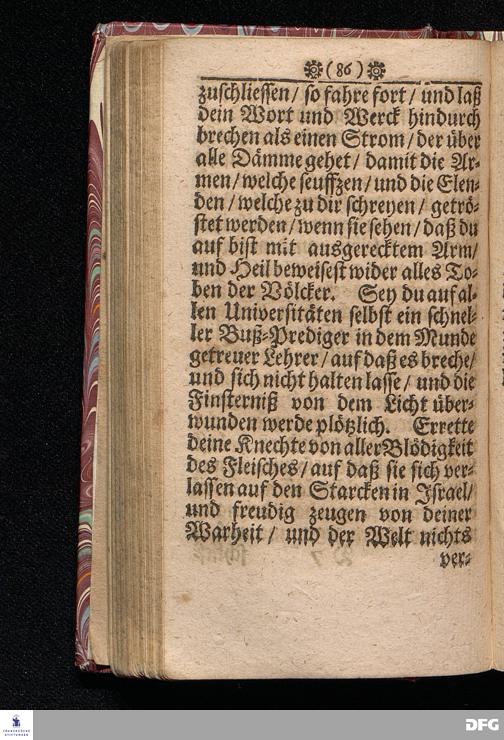 (86)
zuschliessen / so fahre fort / und laß
dein Wort und Werck hindurch
brechen als einen Strom / der über
alle Dämme gehet / damit die Ar-
men / welche seuffzen / und die Elen-
den / welche zu dir schreyen / getrö-
stet werden / wenn sie sehen / daß du
auf bist mit ausgerecktem Arm /
und Heil beweisest wider alles To-
ben der Völcker. Sey du auf al-
len Universitäten selbst ein schnel-
ler Buß-Prediger in dem Munde
getreuer Lehrer / auf daß es breche /
und sich nicht halten lasse / und die
Finsterniß von dem Licht über-
wunden werde plötzlich. Errette
deine Knechte von aller Blödigkeit
des Fleisches / auf daß sie sich ver-
lassen auf den Starcken in Israel /
und freudig zeugen von deiner
Warheit / und der Welt nichts
ver-
FRANCKESCHE
STIFTUNGEN
DFG